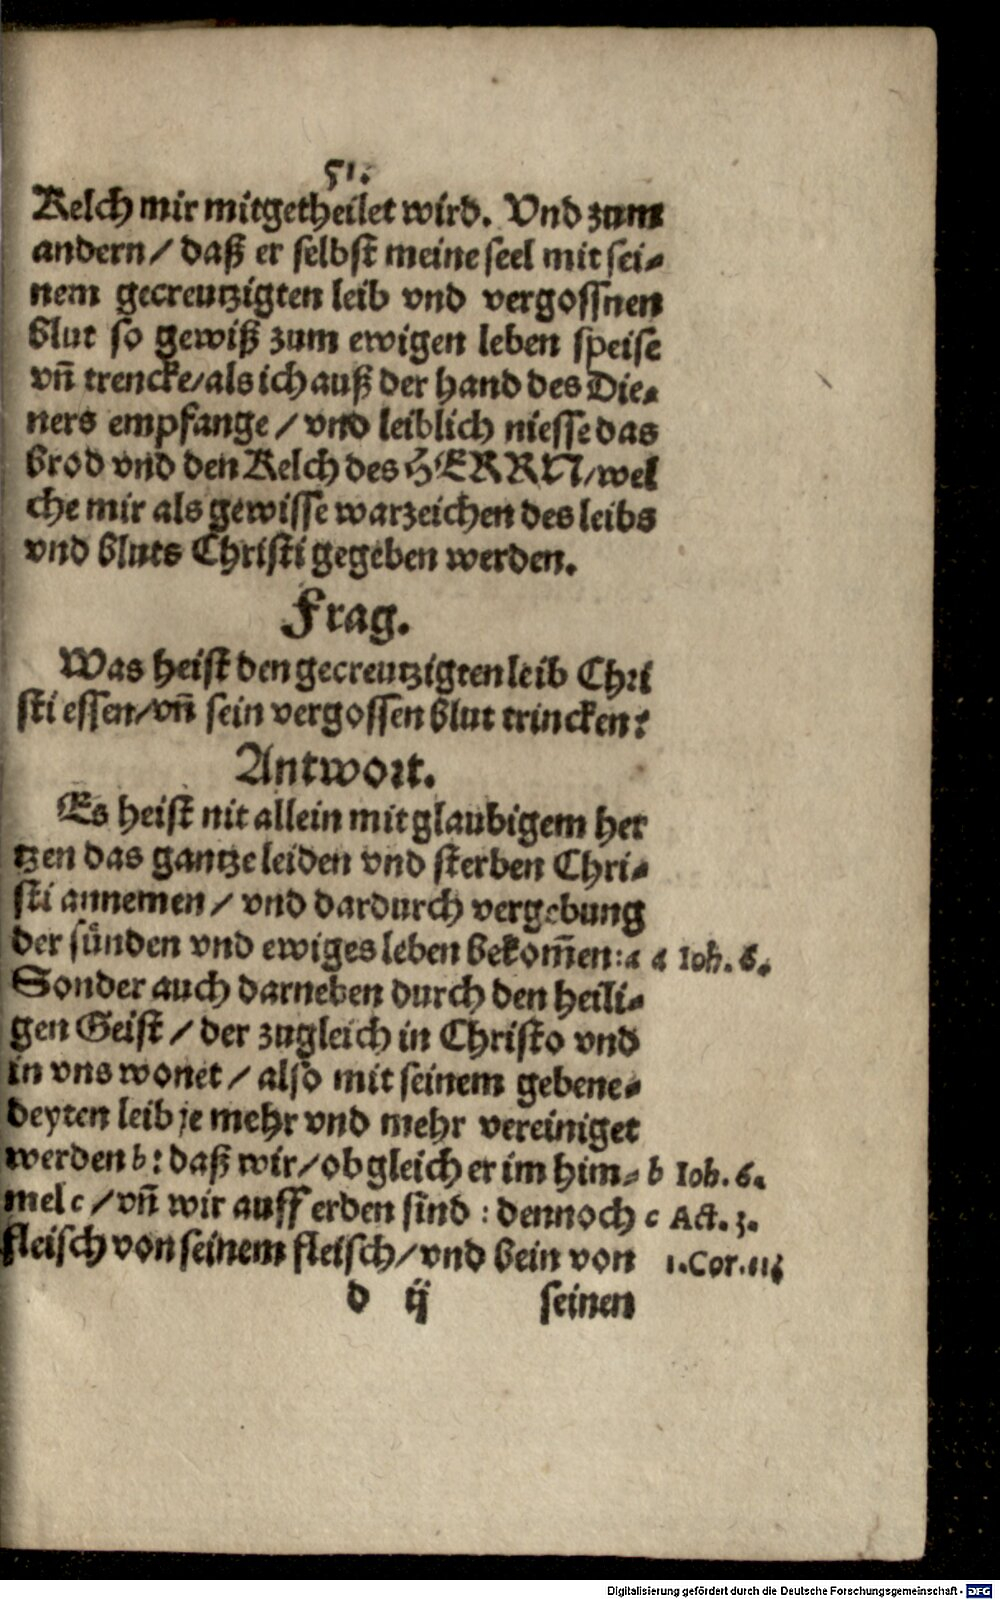 51.
Kelch mir mitgetheilet wird. Vnd zum
andern/ daß er selbst meine seel mit sei-
nem gecreutzigten leib vnd vergossnen
blut so gewiß zum ewigen leben speise
vñ trencke/als ich auß der hand des Die-
ners empfange/ vnd leiblich niesse das
brod vnd den Kelch des HERRN/wel
che mir als gewisse warzeichen des leibs
vnd bluts Christi gegeben werden.
Frag.
Was heist den gecreutzigten leib Chri
sti essen/vñ sein vergossen blut trincken?
Antwort.
Es heist nit allein mit glaubigem her
tzen das gantze leiden vnd sterben Chri-
sti annemen/ vnd dardurch vergebung
der sünden vnd ewiges leben bekom̃en:a a Ioh. 6.
Sonder auch darneben durch den heili-
gen Geist/ der zugleich in Christo vnd
in vns wonet/ also mit seinem gebene-
deyten leib je mehr vnd mehr vereiniget
werden b: daß wir/ob gleich er im him- b Ioh. 6.
mel c/ vñ wir auff erden sind: dennoch c Act. 3.
fleisch von seinem fleisch/ vnd bein von 1. Cor. 11;
d ij seinen
Digitalisierung gefördert durch die Deutsche Forschungsgemeinschaft - DFG